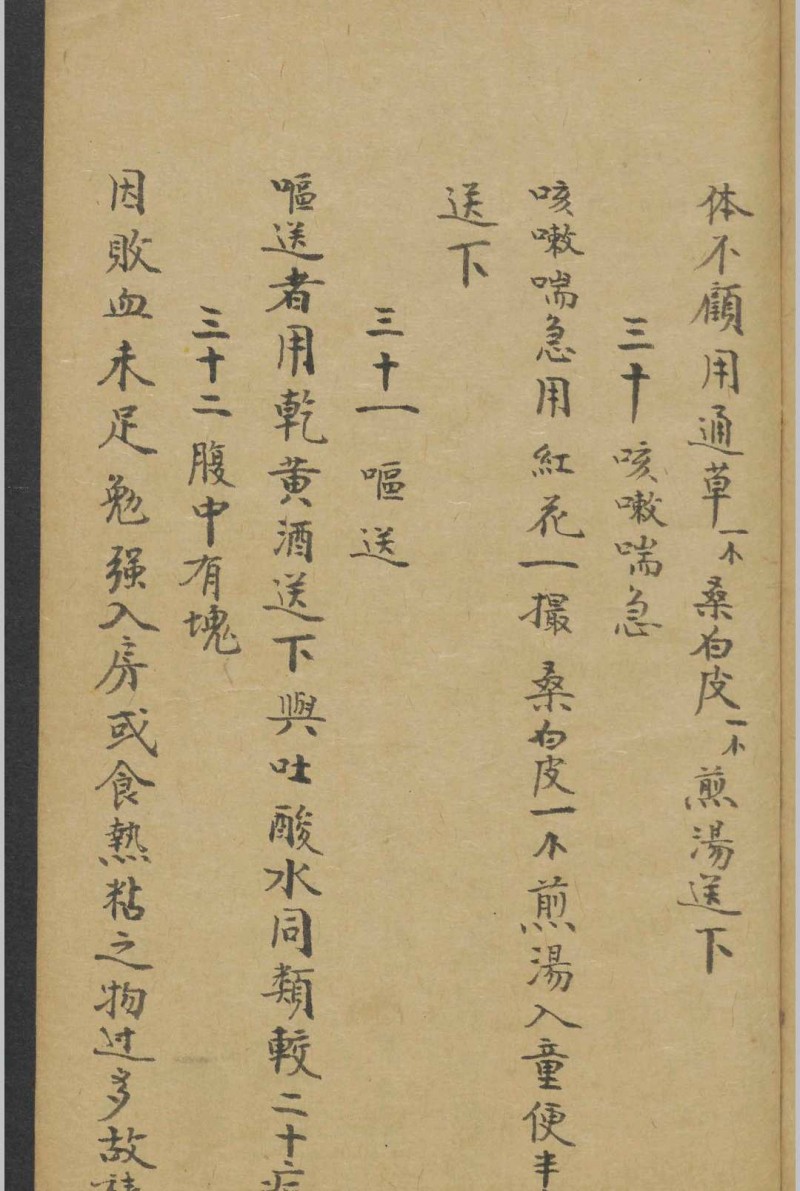 体不顧用通草一个桑白皮一个煎湯送下
三十咳嗽喘急
咳嗽喘急用紅花一撮桑白皮一个煎湯入童便半
送下
三十一嘔送
嘔送者用乾黄酒送下與吐酸水同類較二十
三十二腹中有塊
因敗血未足勉强入房或食熱粘之物过多故